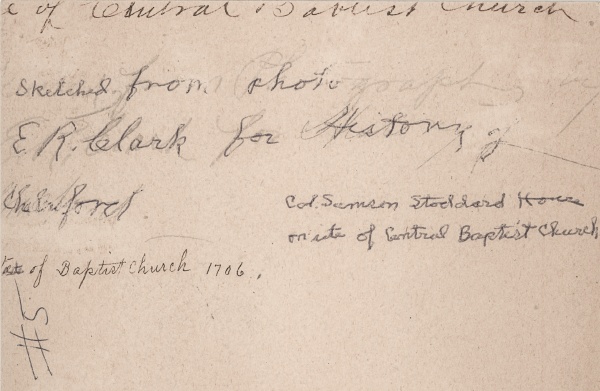 of Central Baptist Church
Sketched from photo
E.R. Clark for History of
Chelmsford.
Col. Samson Stoddard House
on site of Central Baptist Church
of Baptist Church 1706.
#5